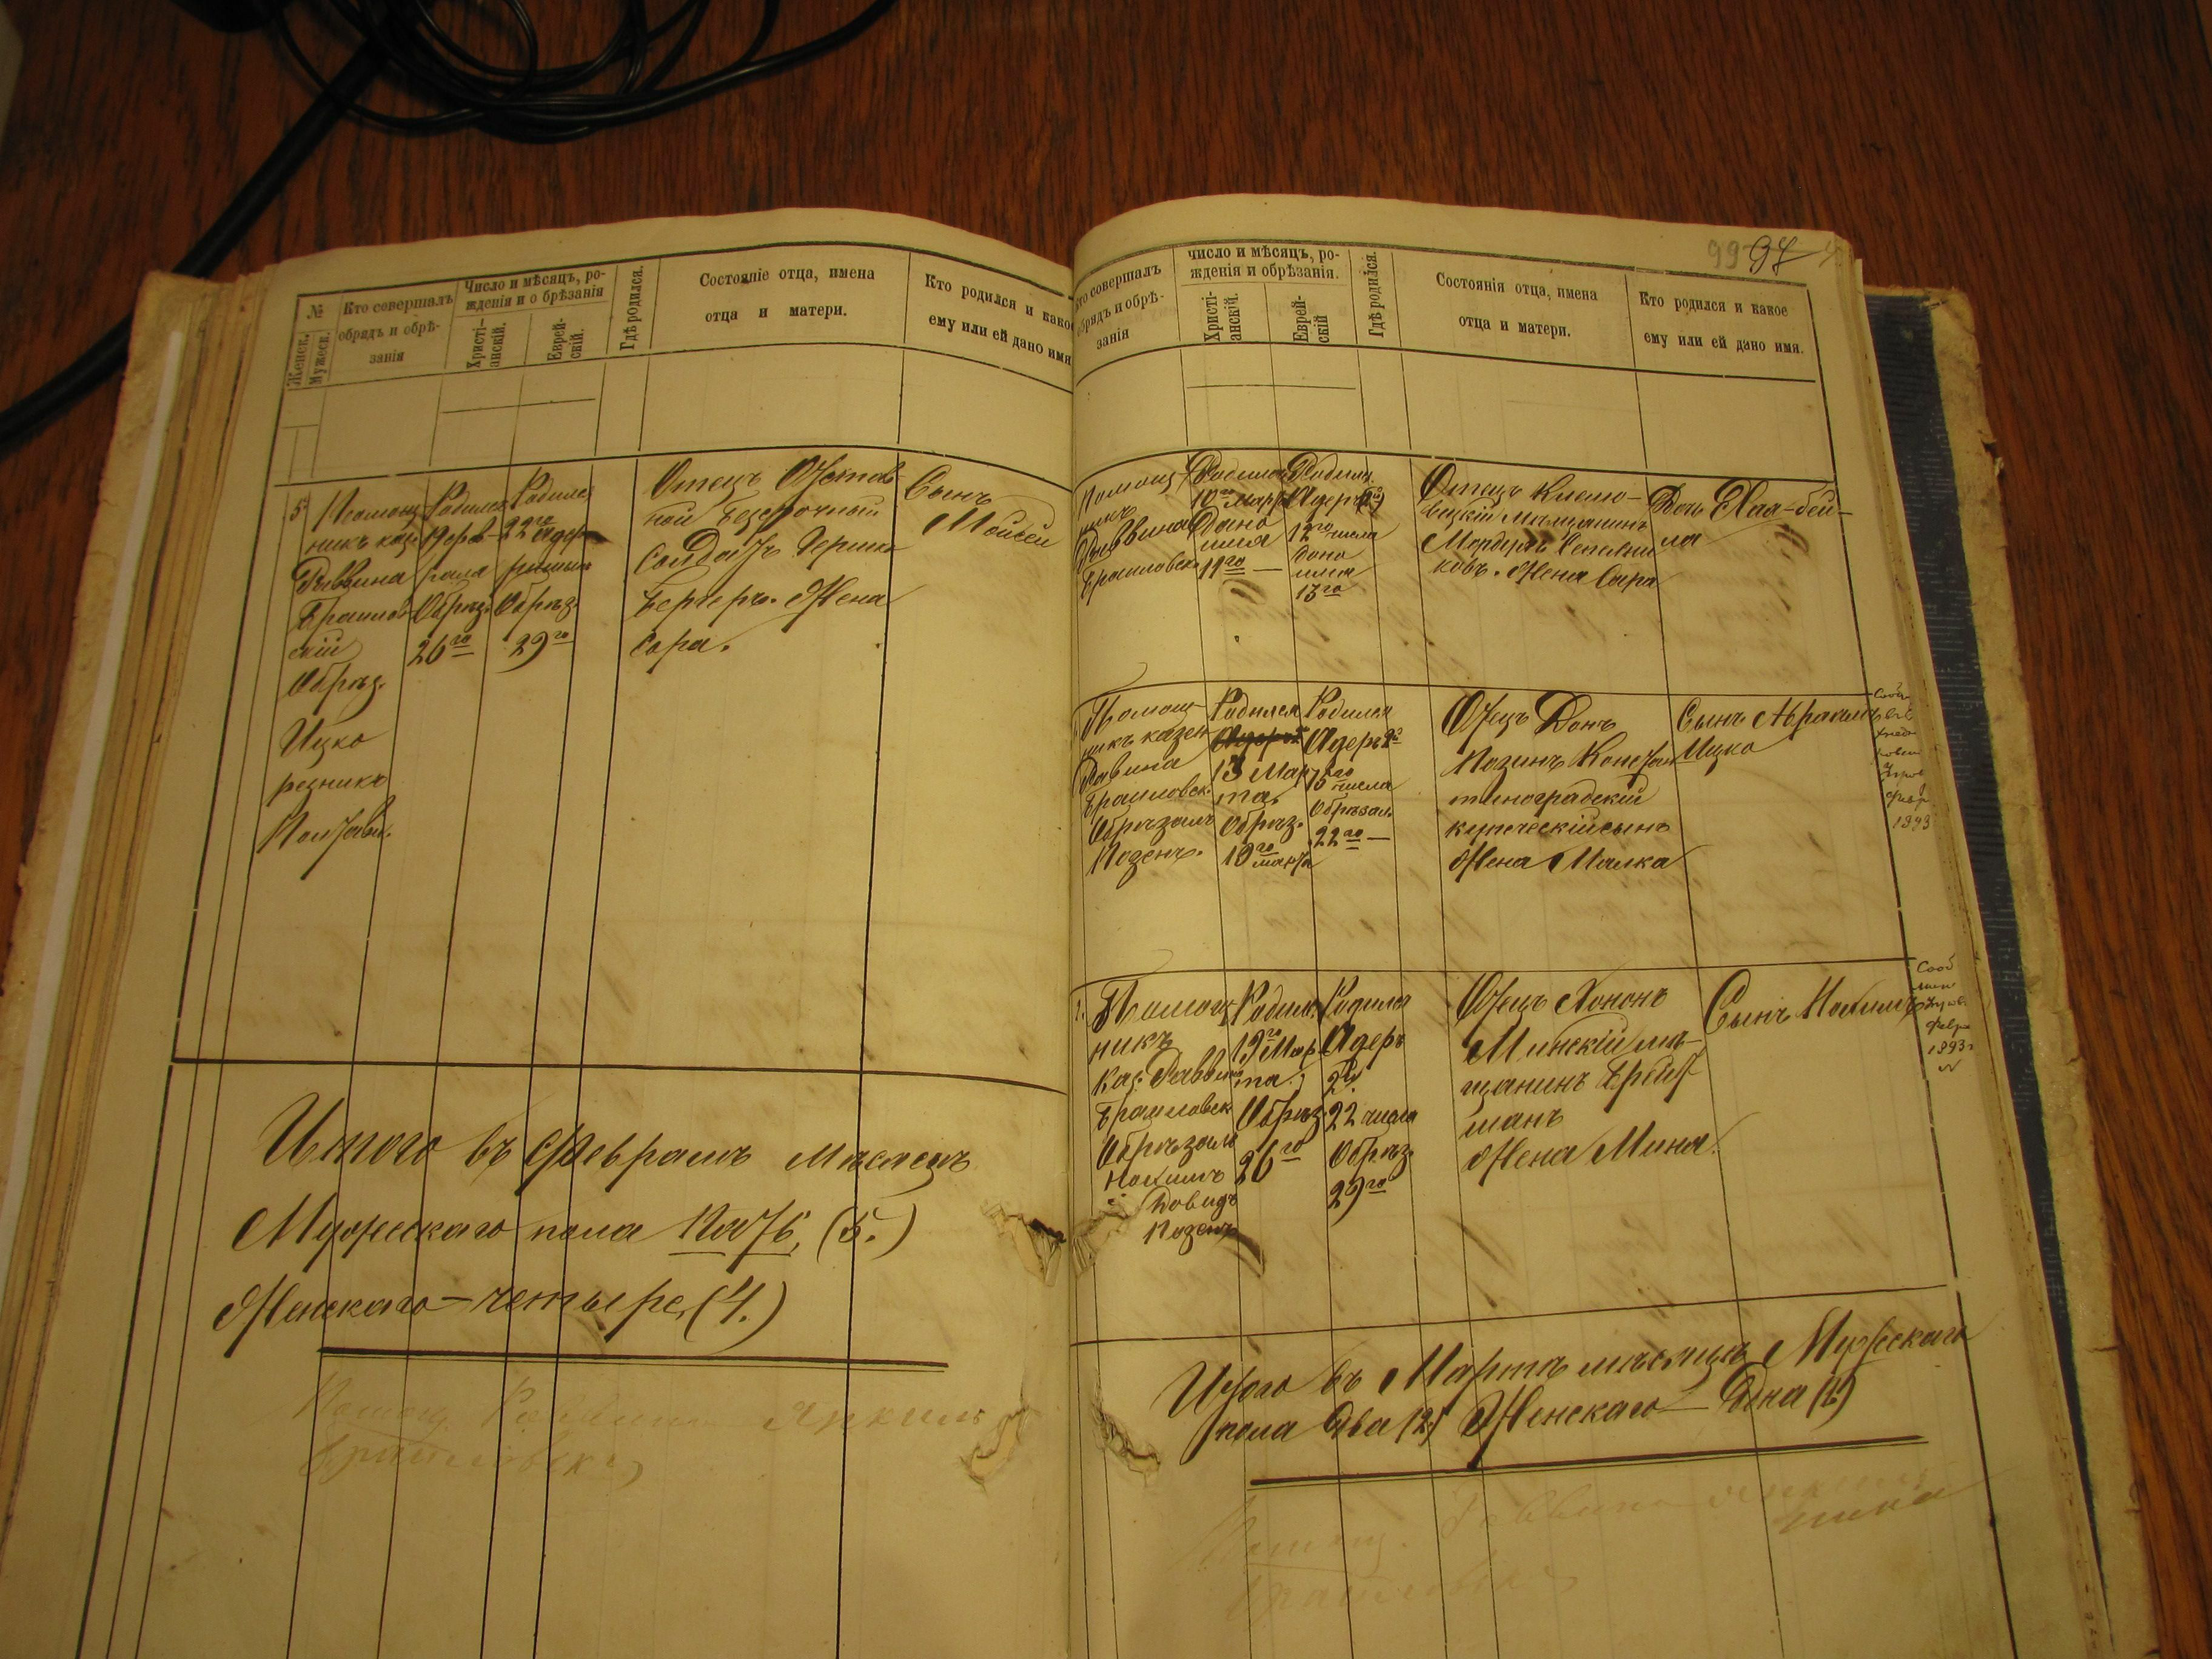 №
Женск.
Мужеск.
Кто совершалъ
обрядъ и обрѣ-
занія
Число и мѣсяцъ, ро-
жденія и о брѣзанія
Христі-
анскій.
Еврей-
скій.
Гдѣ родился.
Состояніе отца, имена
отца и матери.
Кто родился и какое
ему или ей дано имя
5
Помощ-
никъ каз.
Раввина
Браилов-
скій
Обрѣз.
Ицко
резникъ
Родился
19 фев-
раля
Обрѣз.
26го
Родился
22го Адеръ
Обрѣз.
29го
Отецъ Отстав-
ной безсрочный
Солдатъ
Бергеръ. Жена
Сора.
Сынъ
Мойсей
Итого въ Февралѣ мѣсяцѣ
Мужескаго пола Пять, (5.)
Женскаго — четыре, (4.)
Помощ. Раввина
Браиловск
99 97
Кто совершалъ
обрядъ и обрѣ-
занія
число и мѣсяцъ, ро-
жденія и обрѣзанія.
Христі-
анскій.
Еврей-
скій
Гдѣ родился.
Состоянія отца, имена
отца и матери.
Кто родился и какое
ему или ей дано имя.
Помощ-
никъ
Раввина
Браиловск
Родилась
10го Мар
Дано
имя
11го —
Родилась
Адеръ
12го числа
дано
имя
13го
Отецъ
Мѣщанинъ
Жена Сара
Дочь Хая-бей-
ла
Помощ-
никъ казен
Равина
Браиловск.
Обрѣзалъ
Позенъ.
Родился
13 Мар-
та,
Обрѣз.
19го
марта
Родился
Адеръ 2й
15го
числа
Обрѣзал.
22го —
Отецъ Донъ
Позинъ Констан
тиноградскій
купеческій сынъ
Жена Малка
Сынъ Абрамъ
Ицко
1893
Помощ
никъ
Каз. Раввина
Браиловск
Обрѣзалъ
Нохимъ
Довидъ
Позенъ
Родился
19го Мар
та.,
Обрѣз.
26го
Родился
Адеръ
2й
22 числа
Обрѣз.
29го
Отецъ Хононъ
Минскій мѣ-
щанинъ Брейт
манъ
Жена Мина.
Сынъ Нохимъ
Сооб
февр
1893
Итого въ Мартѣ мѣсяцѣ Мужескаго
пола Два (2) Женскаго — Одна (1)
Помощ. Раввина